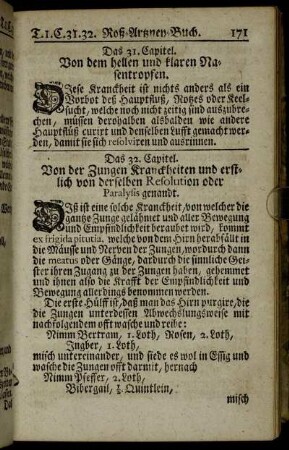 T.1.C.31.32. Roß-Artzney-Buch. 171
Das 31. Capitel.
Von dem hellen und klaren Na-
sentropfen.
Diese Kranckheit ist nichts anders als ein
Vorbot deß Hauptfluß, Rotzes oder Keel-
sucht, welche noch nicht zeitig sind auszubre-
chen, müssen derohalben alsbalden wie andere
Hauptflüß curirt und denselben Lufft gemacht wer-
den, damit sie sich resolviren und ausrinnen.
Das 32. Capitel.
Von der Zungen Kranckheiten und erst-
lich von derselben Resolution oder
Paralysis genandt.
Diß ist eine solche Kranckheit, von welcher die
gantze Zunge gelähmet und aller Bewegung
und Empfindlichkeit beraubet wird, kommt
ex frigida pituita, welche von dem Hirn herabfällt in
die Mäuse und Nerven der Zungen, wordurch dann
die meatus oder Gänge, dardurch die sinnliche Gei-
ster ihren Zugang zu der Zungen haben, gehemmet
und ihnen also die Krafft der Empfindlichkeit und
Bewegung allerdings benommen werden.
Die erste Hülff ist, daß man das Hirn purgire, die
die Zungen unterdessen Abwechslungsweise mit
nachfolgendem offt wasche und reibe:
Nimm Bertram, 1. Loth, Rosen, 2. Loth,
Ingber, 1. Loth,
misch untereinander, und siede es wol in Essig und
wasche die Zungen offt darmit, hernach
Nimm Pfeffer, 2. Loth,
Bibergail, ½. Quintlein,
misch